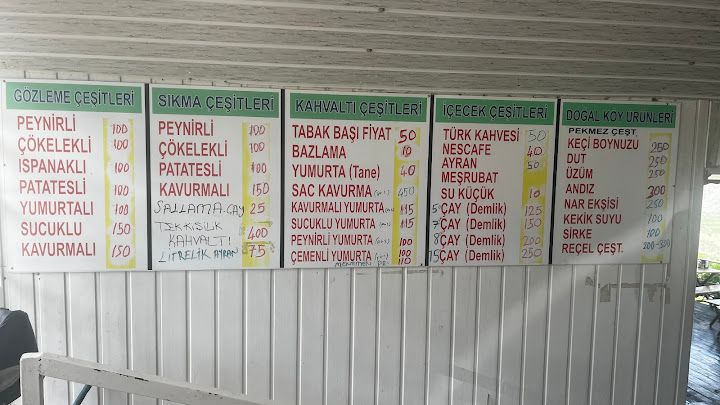 GÖZLEME ÇEŞİTLERİ
PEYNİRLİ 100
ÇÖKELEKLİ 100
ISPANAKLI 100
PATATESLİ 100
YUMURTALI 100
SUCUKLU 150
KAVURMALI 150
SIKMA ÇEŞİTLERİ
PEYNİRLİ 100
ÇÖKELEKLİ 100
PATATESLİ 100
KAVURMALI 150
SALLAMA ÇAY 25
TEK KİŞİLİK
KAHVALTI 400
LİTRELİK AYRAN 75
KAHVALTI ÇEŞİTLERİ
TABAK BAŞI FİYAT 50
BAZLAMA 10
YUMURTA (Tane) 40
SAC KAVURMA 450
KAVURMALI YUMURTA 115
SUCUKLU YUMURTA 115
PEYNİRLİ YUMURTA 100
ÇEMENLİ YUMURTA 100
MENEMEN 110
İÇECEK ÇEŞİTLERİ
TÜRK KAHVESİ 50
NESCAFE 40
AYRAN 50
MEŞRUBAT
SU KÜÇÜK 10
5 ÇAY (Demlik) 125
7 ÇAY (Demlik) 150
8 ÇAY (Demlik) 200
15 ÇAY (Demlik) 250
DOĞAL KÖY ÜRÜNLERİ
PEKMEZ ÇEŞT.
KEÇİ BOYNUZU 250
DUT 250
ÜZÜM 250
ANDIZ 300
NAR EKŞİSİ 250
KEKİK SUYU 100
SİRKE 100
REÇEL ÇEŞT. 200-300